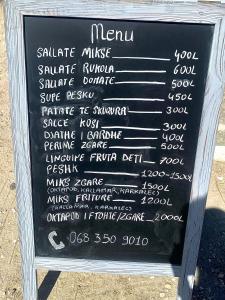 Menu
SALLATE MIKSE 400L
SALLATE RUKOLA 600L
SALLATE DOMATE 500L
SUPE PESHKU 450L
PATATE TE SKUQURA 300L
SALCE KOSI 300L
DJATHE I BARDHE 400L
PERIME ZGARE 500L
LINGUIPE FRUTA DETI 700L
PESHK 1200-1500L
MIKS ZGARE 1500L
(OKTAPOD, KALLAMAR, KARKALEC)
MIKS FRITURE 1200L
(KALLAMAR, KARKALEC)
OKTAPOD I FTOHTE/ZGARE 2000L
068 350 9010